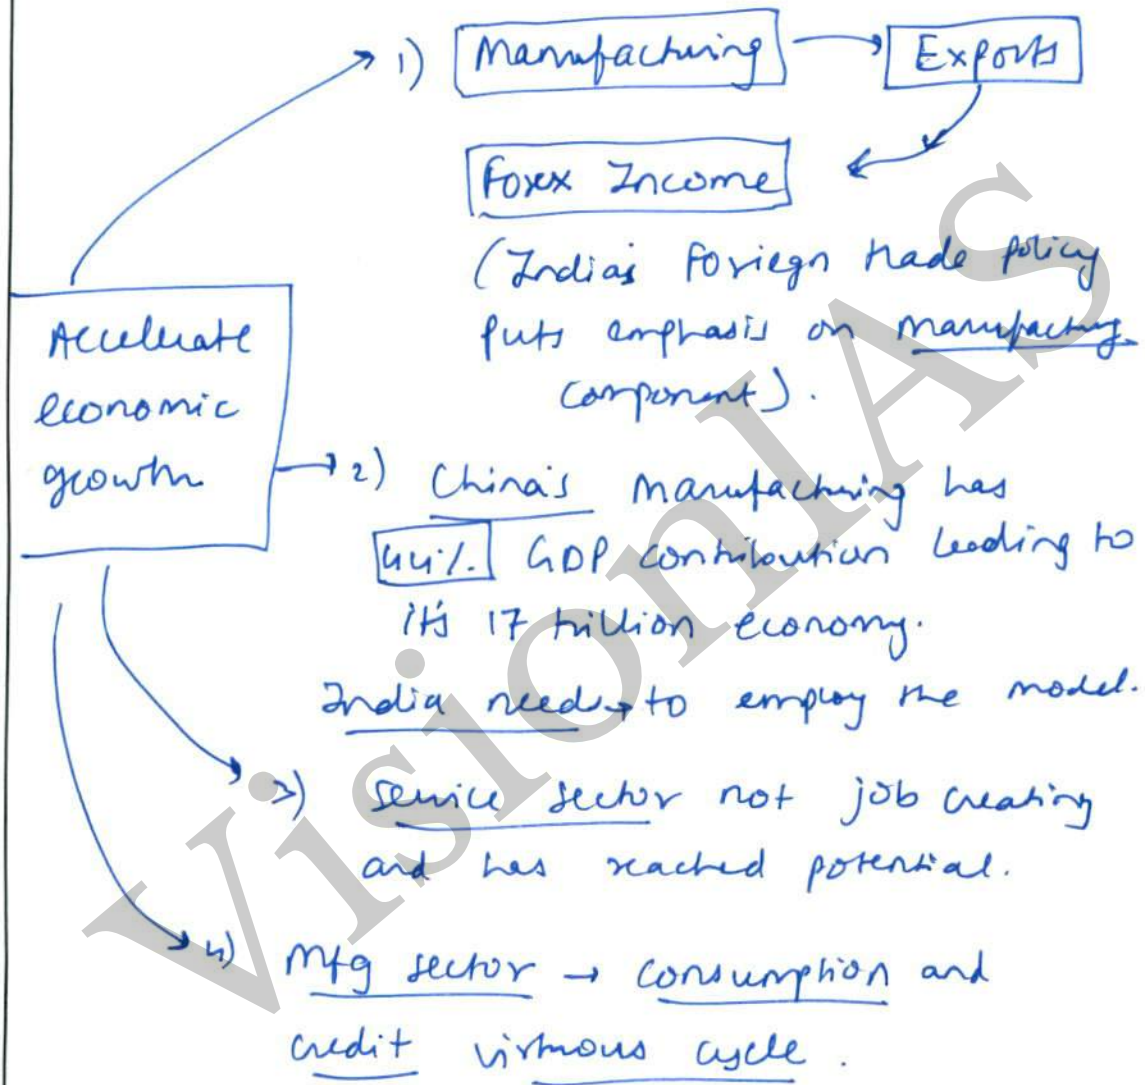 1) Manufacturing → Exports
Forex Income
(India's Foriegn trade policy
puts emphasis on manufacturing
component).
Accelerate
economic
growth
→ 2) China's manufacturing has
44% GDP contribution leading to
it's 17 trillion economy.
India needs to employ the model.
3) Service sector not job creating
and has reached potential.
4) Mfg sector → consumption and
credit virtuous cycle.
VisionIAS